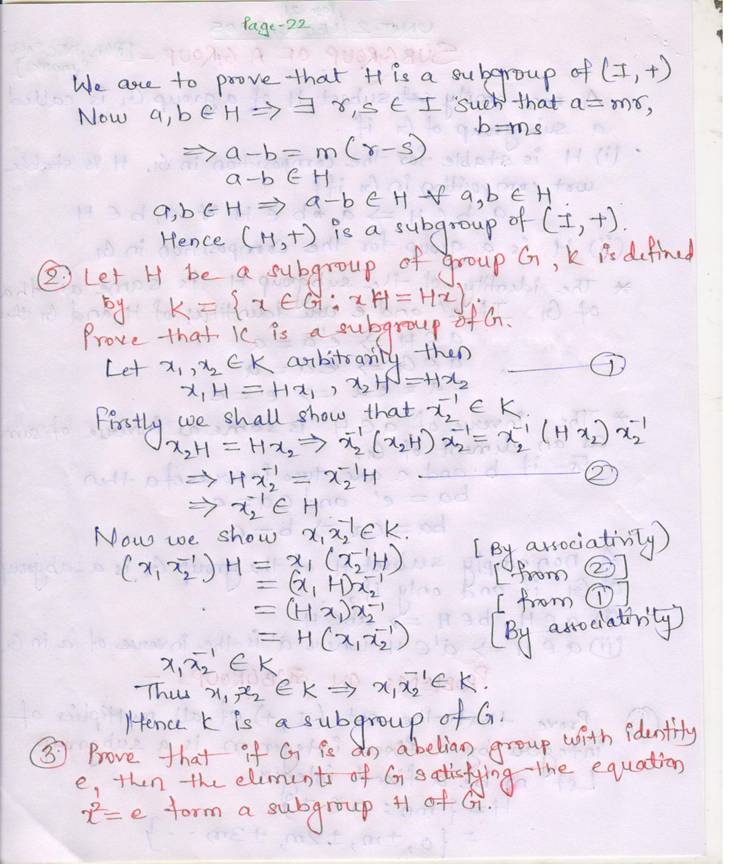 Page-22
We are to prove that H is a subgroup of (I, +)
Now a, b ∈ H ⇒ ∃ r, s ∈ I such that a = mr,
b = ms
⇒ a-b = m (r-s)
a-b ∈ H
a, b ∈ H ⇒ a-b ∈ H ∀ a, b ∈ H.
Hence (H, +) is a subgroup of (I, +).
② Let H be a subgroup of group G, K is defined
by K = {x ∈ G : xH = Hx}.
Prove that K is a subgroup of G.
Let x₁, x₂ ∈ K arbitrarily then
x₁H = Hx₁, x₂H = Hx₂ ——— ①
Firstly we shall show that x₂⁻¹ ∈ K.
x₂H = Hx₂ ⇒ x₂⁻¹ (x₂H) x₂⁻¹ = x₂⁻¹ (H x₂) x₂⁻¹
⇒ H x₂⁻¹ = x₂⁻¹H ——— ②
⇒ x₂⁻¹ ∈ H
Now we show x₁x₂⁻¹ ∈ K.
(x₁x₂⁻¹) H = x₁ (x₂⁻¹H) [By associativity)
= (x₁ H)x₂⁻¹ [from ②]
= (Hx₁)x₂⁻¹ [from ①]
= H (x₁x₂⁻¹) [By associativity]
x₁x₂⁻¹ ∈ K
Thus x₁, x₂ ∈ K ⇒ x₁x₂⁻¹ ∈ K.
Hence K is a subgroup of G.
③ Prove that if G is an abelian group with identity
e, then the elements of G satisfying the equation
x² = e form a subgroup H of G.